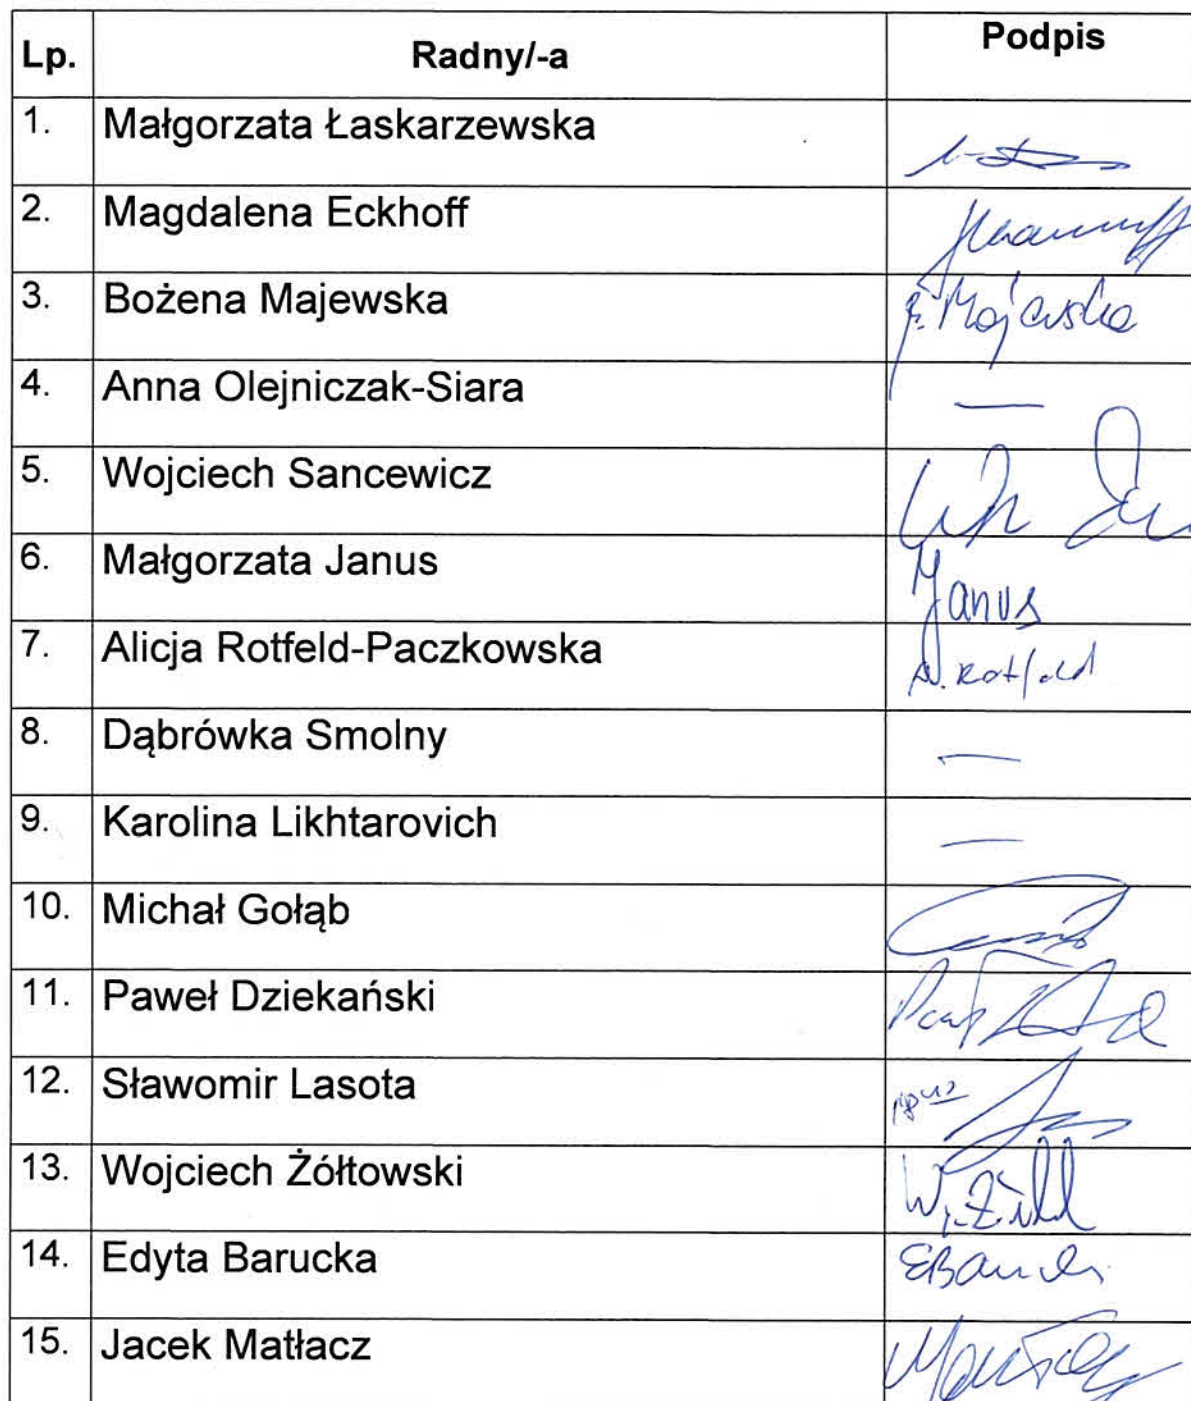 Lp. Radny/-a Podpis
1. Małgorzata Łaskarzewska
2. Magdalena Eckhoff
3. Bożena Majewska B. Majewska
4. Anna Olejniczak-Siara —
5. Wojciech Sancewicz
6. Małgorzata Janus MJanus
7. Alicja Rotfeld-Paczkowska A. Rotfeld
8. Dąbrówka Smolny —
9. Karolina Likhtarovich —
10. Michał Gołąb
11. Paweł Dziekański
12. Sławomir Lasota
13. Wojciech Żółtowski
14. Edyta Barucka
15. Jacek Matłacz